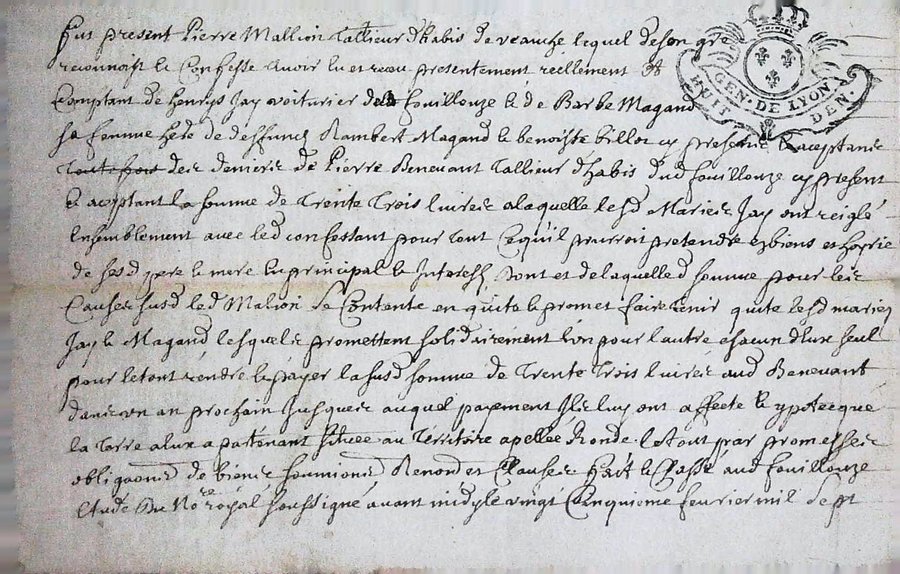 Fut present Pierre Mallion Tallieur d'habis de veauche lequel de son gre
reconnoist & Confesse Avoir hu et receu presentement reellement et
Comptant de henrys Jay voiturier de fouillouze & de Barbe Magand
sa femme de deffunct Rambert Magand & benoiste billot cy presente & aceptante
toutefois des deniers de Pierre Benevant Tallieur d'habis dud fouillouze cy present
& aceptant la somme de Trente Trois livres a laquelle lesd Maries Jay ont reiglé
Ensemblement avec led confessant pour tout Ce qu'il pourroit pretendre es biens et hoyrie
de sesd pere & mere En principal & Interest, dont et de laquelle d somme pour les
Causes susd led Malion se Contente en quite & promet faire tenir quite lesd maries
Jay & Magand lesquels promettent solidairement l'un pour l'autre chacun d'eux seul
pour le tout rendre & payer la susd somme de Trente Trois livres aud Benevant
dans un an prochain Jusques auquel payement Ils luy ont affecté & ypotecque
la Terre a eux apartenant située au Territoire apellée Ronde le tout par promesses
obligaons de biens soumions Renons et Clauses fait & Passé aud fouillouze
Etude du No.re royal soussigné avant midy le vingt Cinquieme fevrier mil sept
GEN. DE LYON
HUIT DEN.